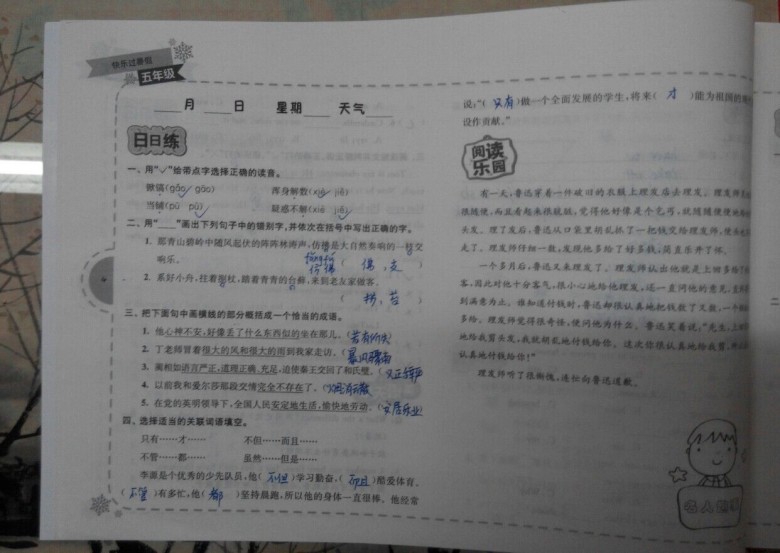 快乐过寒假
五年级
月 日 星期 天气
日日练
一、用“✓”给带点字选择正确的读音。
做镐(gǎo gāo) 浑身解数(xiè jiě)
当铺(pū pù) 疑惑不解(xiè jiě)
二、用“ ”画出下列句子中的错别字,并依次在括号中写出正确的字。
1. 那青山碧岭中随风起伏的阵阵林涛声,仿拂是大自然奏响的一枝交
响乐。 ( 佛,支 )
2. 系好小舟,拄着 杖,踏着青青的台藓,来到老友家做客。
( 拐,苔 )
三、把下面句中画横线的部分概括成一个恰当的成语。
1. 他心神不安,好像丢了什么东西似的坐在那儿。(若有所失)
2. 丁老师冒着很大的风和很大的雨到我家走访。(暴风骤雨)
3. 蔺相如语言严正,道理正确、充足,迫使秦王交回了和氏璧。(义正辞严)
4. 以前我和爱尔莎那段交情完全不存在了。(烟消云散)
5. 在党的英明领导下,全国人民安定地生活,愉快地劳动。(安居乐业)
四、选择适当的关联词语填空。
只有……才…… 不但……而且……
不管……都…… 虽然……但是……
李源是个优秀的少先队员,他( 不但 )学习勤奋,( 而且 )酷爱体育。
( 不管 )有多忙,他( 都 )坚持晨跑,所以他的身体一直很棒。他经常
说:“( 只有 )做一个全面发展的学生,将来( 才 )能为祖国的
设作贡献。”
阅读乐园
有一天,鲁迅穿着一件破旧的衣服上理发店去理发。理发师见
很随便,而且看起来很肮脏,觉得他好像是个乞丐,就随随便便地
头发。理了发后,鲁迅从口袋里胡乱抓了一把钱交给理发师,便头也
走了。理发师仔细一数,发现他多给了好多钱,简直乐开了怀。
一个多月后,鲁迅又来理发了。理发师认出他就是上回多给了
客,因此对他十分客气,很小心地给他理发,还一直问他的意见,直到
到满意为止。谁知道付钱时,鲁迅却很认真地把钱数了又数,一个
多给。理发师觉得很奇怪,便问他为什么。鲁迅笑着说:“先生,上回
地给我剪头发,我就胡乱地付钱给你。这次你很认真地给我剪,所以
认真地付钱给你!”
理发师听了很惭愧,连忙向鲁迅道歉。
名人